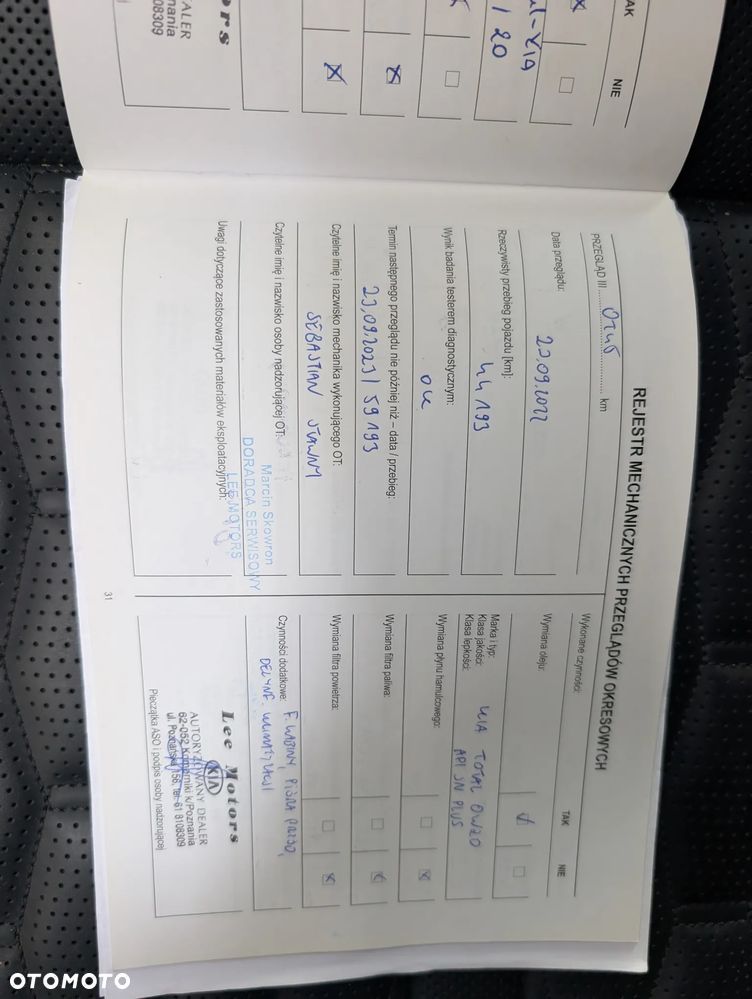 TAK
NIE
20
ors
EALER
nania
08309
REJESTR MECHANICZNYCH PRZEGLĄDÓW OKRESOWYCH
PRZEGLĄD III ........ km
Data przeglądu:
23.09.2022
Rzeczywisty przebieg pojazdu [km]:
44 193
Wynik badania testerem diagnostycznym:
OK
Termin następnego przeglądu nie później niż – data / przebieg:
23.09.2023 / 59 193
Czytelne imię i nazwisko mechanika wykonującego OT:
SEBASTIAN
Czytelne imię i nazwisko osoby nadzorującej OT:
Marcin Skowron
DORADCA SERWISOWY
LEE MOTORS
Uwagi dotyczące zastosowanych materiałów eksploatacyjnych:
31
Wykonane czynności:
TAK
NIE
Wymiana oleju:
Marka i typ:
Klasa jakości:
Klasa lepkości:
KIA TOTAL 0W20
API SN PLUS
Wymiana płynu hamulcowego:
Wymiana filtra paliwa:
Wymiana filtra powietrza:
Czynności dodatkowe:
F. KABINY, PIÓRA PRZÓD,
Lee Motors
KIA
AUTORYZOWANY DEALER
62-052 Komorniki k/Poznania
ul. Poznańska 156, tel. 61 8108309
Pieczątka ASO i podpis osoby nadzorującej
OTOMOTO